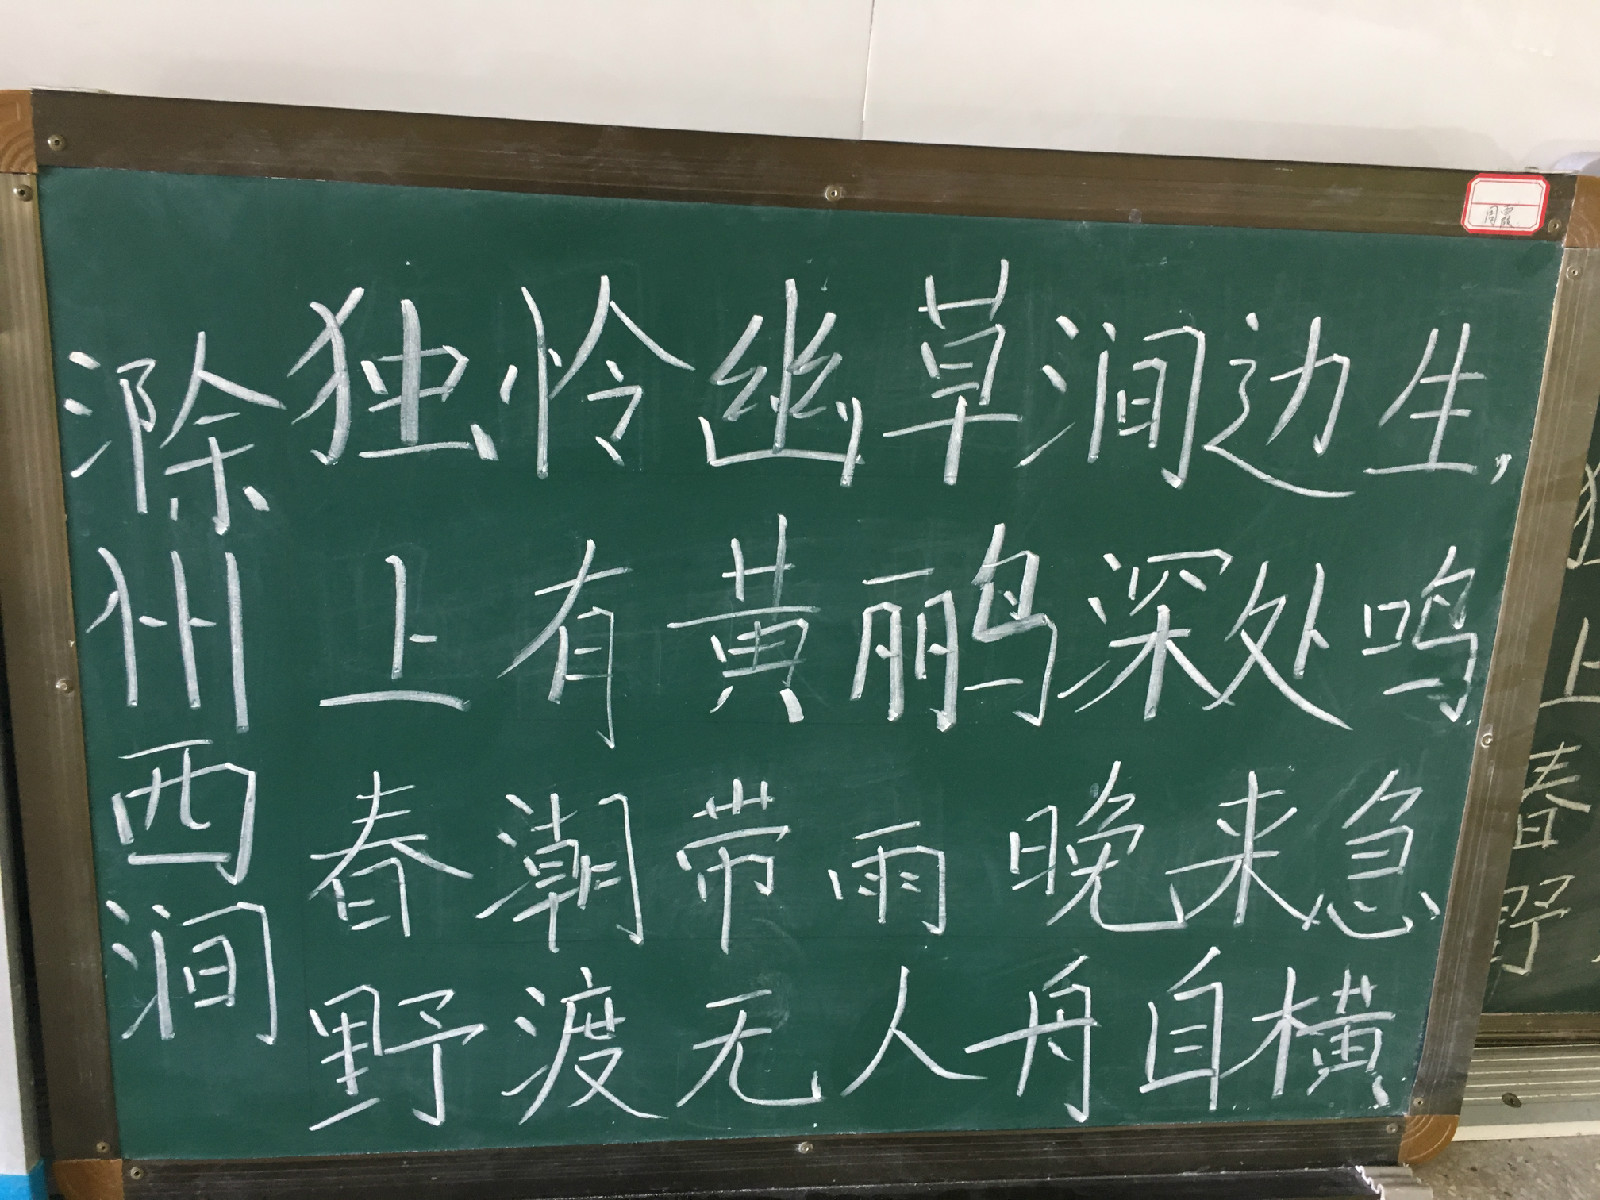 滁州西涧
独怜幽草涧边生，
上有黄鹂深处鸣
春潮带雨晚来急
野渡无人舟自横